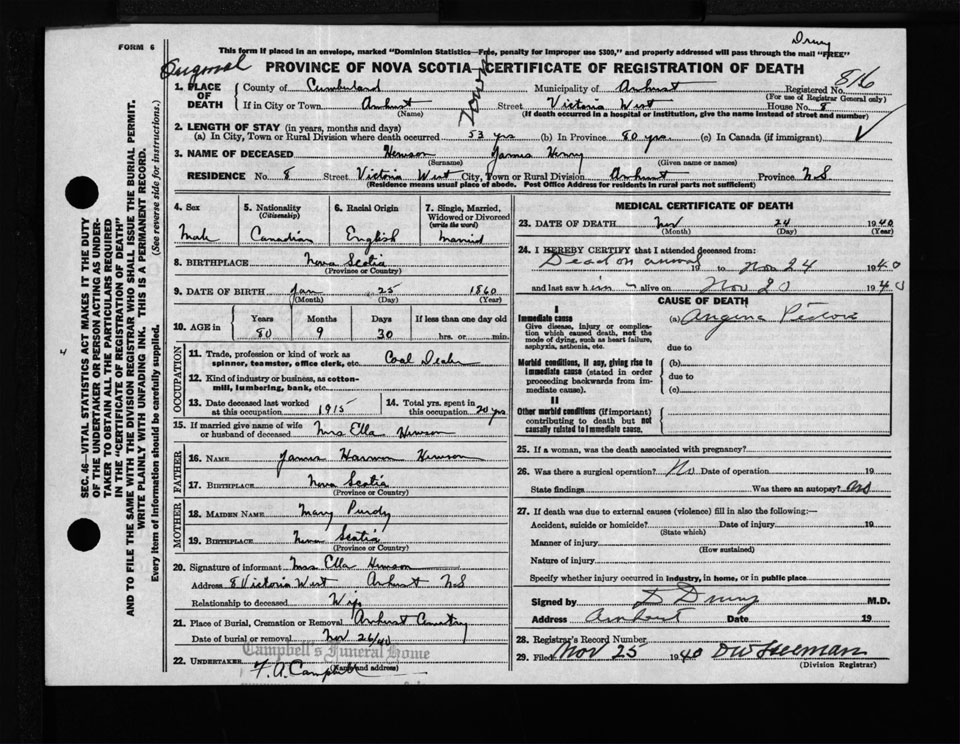 FORM 6
This form if placed in an envelope, marked "Dominion Statistics—Free, penalty for improper use $300," and properly addressed will pass through the mail "FREE"
Drury
PROVINCE OF NOVA SCOTIA—CERTIFICATE OF REGISTRATION OF DEATH
1. PLACE OF DEATH
County of Cumberland Municipality of Amherst Registered No. 816
(For use of Registrar General only)
If in City or Town Amherst Street Victoria West House No. 8
(Name) (If death occurred in a hospital or institution, give the name instead of street and number)
Town
2. LENGTH OF STAY (in years, months and days)
(a) In City, Town or Rural Division where death occurred 53 yrs (b) In Province 80 yrs. (c) In Canada (if immigrant)
3. NAME OF DECEASED Hewson James Henry
(Surname) (Given name or names)
RESIDENCE No. 8 Street Victoria West City, Town or Rural Division Amherst Province N S
(Residence means usual place of abode. Post Office Address for residents in rural parts not sufficient)
4. Sex Male
5. Nationality (Citizenship) Canadian
6. Racial Origin English
7. Single, Married, Widowed or Divorced (write the word) Married
8. BIRTHPLACE Nova Scotia
(Province or Country)
9. DATE OF BIRTH Jan 25 1860
(Month) (Day) (Year)
10. AGE in Years Months Days If less than one day old
80 9 30 hrs. or min.
OCCUPATION
11. Trade, profession or kind of work as spinner, teamster, office clerk, etc. Coal Dealer
12. Kind of industry or business, as cotton-mill, lumbering, bank, etc.
13. Date deceased last worked at this occupation 1915
14. Total yrs. spent in this occupation 20 yrs
15. If married give name of wife or husband of deceased Mrs Ella Hewson
FATHER
16. NAME James Hewson
17. BIRTHPLACE Nova Scotia
(Province or Country)
MOTHER
18. MAIDEN NAME Mary Purdy
19. BIRTHPLACE Nova Scotia
(Province or Country)
20. Signature of informant Mrs Ella Hewson
Address 8 Victoria West Amherst N S
Relationship to deceased Wife
21. Place of Burial, Cremation or Removal Amherst Cemetery
Date of burial or removal Nov 26/40
Campbell's Funeral Home
22. UNDERTAKER F. A. Campbell
(Name and address)
MEDICAL CERTIFICATE OF DEATH
23. DATE OF DEATH Nov 24 1940
(Month) (Day) (Year)
24. I HEREBY CERTIFY that I attended deceased from:
Dead on arrival 19 to Nov 24 1940
and last saw him alive on Nov 20 1940
CAUSE OF DEATH
I
Immediate cause (a) Angina Pectoris
Give disease, injury or complication which caused death, not the mode of dying, such as heart failure, asphyxia, asthenia, etc.
due to
Morbid conditions, if any, giving rise to immediate cause (stated in order proceeding backwards from immediate cause).
(b)
due to
(c)
II
Other morbid conditions (if important) contributing to death but not causally related to immediate cause.
25. If a woman, was the death associated with pregnancy?
26. Was there a surgical operation? No Date of operation 19
State findings Was there an autopsy? no
27. If death was due to external causes (violence) fill in also the following:—
Accident, suicide or homicide? Date of injury 19
(State which)
Manner of injury
(How sustained)
Nature of injury
Specify whether injury occurred in industry, in home, or in public place
Signed by D Drury M.D.
Address Amherst Date 19
28. Registrar's Record Number
29. Filed Nov 25 1940
(Division Registrar)
SEC. 46—VITAL STATISTICS ACT MAKES IT THE DUTY
OF THE UNDERTAKER OR PERSON ACTING AS UNDER-
TAKER TO OBTAIN ALL THE PARTICULARS REQUIRED
IN THE "CERTIFICATE OF REGISTRATION OF DEATH"
AND TO FILE THE SAME WITH THE DIVISION REGISTRAR WHO SHALL ISSUE THE BURIAL PERMIT.
WRITE PLAINLY WITH UNFADING INK. THIS IS A PERMANENT RECORD.
Every item of information should be carefully supplied. (See reverse side for instructions.)